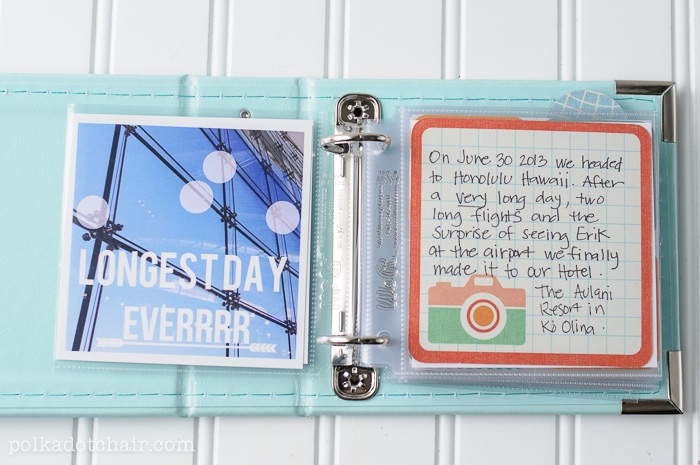 LONGEST DAY
EVERRRR
On June 30 2013 we headed
to Honolulu Hawaii. After
a very long day, two
long flights and the
surprise of seeing Erik
at the airport we finally
made it to our Hotel.
The Aulani
Resort in
Ko Olina.
polkadotchair.com